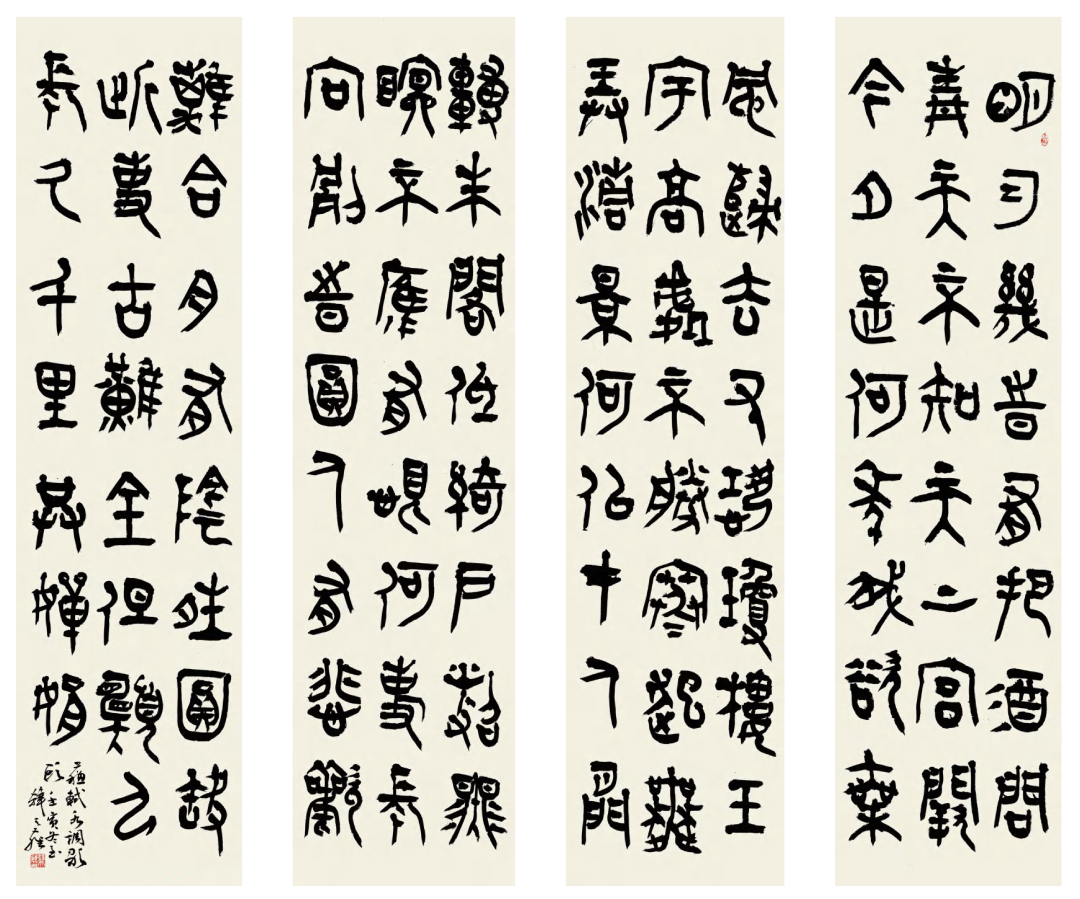 明月幾時有把酒問
青天不知天上宮闕
今夕是何年我欲乘
風歸去又恐瓊樓玉
宇高處不勝寒起舞
弄清影何似在人間
轉朱閣低綺戶照無
眠不應有恨何事長
向別時圓人有悲歡
離合月有陰晴圓缺
此事古難全但願人
長久千里共嬋娟
蘇軾水調歌
頭壬寅冬書